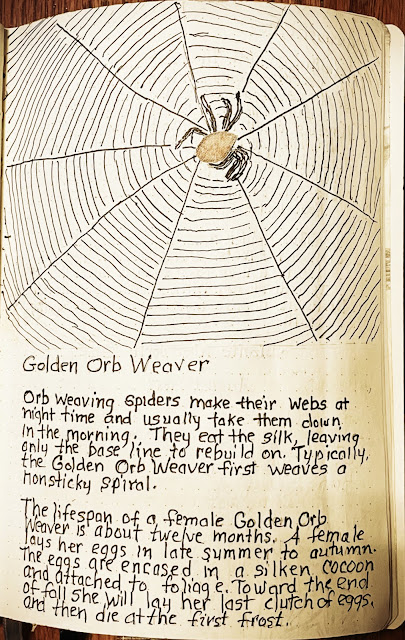 Golden Orb Weaver
Orb weaving spiders make their webs at
night time and usually take them down
in the morning. They eat the silk, leaving
only the base line to rebuild on. Typically,
the Golden Orb Weaver first weaves a
nonsticky spiral.
The lifespan of a female Golden Orb
Weaver is about twelve months. A female
lays her eggs in late summer to autumn.
The eggs are encased in a silken cocoon
and attached to foliage. Toward the end
of fall she will lay her last clutch of eggs.
and then die at the first frost.